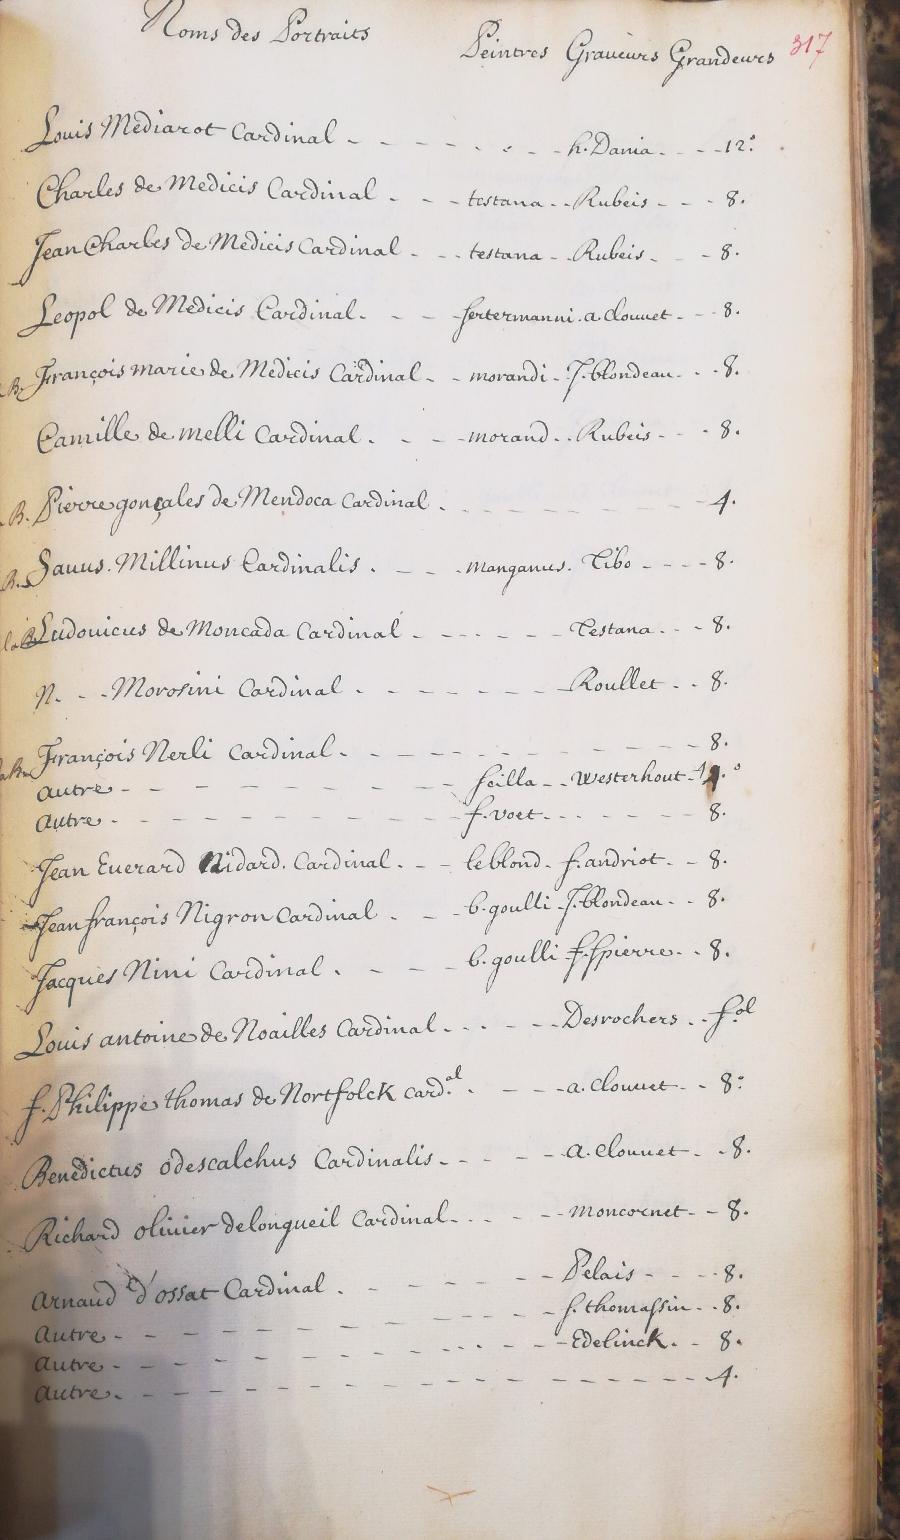 Noms des Portraits Peintres Graueurs Grandeurs 317
Louis Mediarot Cardinal - - - - - - - - h. Dania - - - 12.°
Charles de Medicis Cardinal - - - testana - - Rubeis - - - 8.
Jean Charles de Medicis Cardinal - - - testana - - Rubeis - - - 8.
Leopol de Medicis Cardinal - - - sertermanni. a. Clouuet - - - 8.
B. François marie de Medicis Cardinal - - morandi - J. blondeau - - - 8.
Camille de melli Cardinal - - - morand - - Rubeis - - - 8.
B. Pierre gonçales de Mendoca Cardinal - - - - - - - 4.
B. Sauus. Millinus Cardinalis - - - manganus. Tibo - - - - 8.
la B. Ludouicus de Moncada Cardinal - - - - - - Testana - - - 8.
N. - - Morosini Cardinal - - - - - - - - Roullet - - 8.
François Nerli Cardinal - - - - - - - - - - - 8.
autre - - - - - - - - scilla - - Westerhout - 4.°
autre - - - - - - - - - f. voet - - - - - - - 8.
Jean Euerard Nidard. Cardinal - - - leblond - f. andriot - - 8.
Jean françois Nigron Cardinal - - - b. goulli - J. blondeau - - 8.
Jacques Nini Cardinal - - - - b. goulli f. Spierre - - 8.
Louis antoine de Noailles Cardinal - - - - - - Desrochers - - fol
f. Philippe thomas de Nortfolck card.al - - - - a. Clouuet - - 8.
Benedictus odescalchus Cardinalis - - - - - - a. Clouuet - - 8.
Richard oliuier delongueil Cardinal - - - - - - moncornet - - 8.
Arnaud d'ossat Cardinal - - - - - - - Pelais - - - - 8.
autre - - - - - - - - - - - f. thomassin - - 8.
autre - - - - - - - - - - - Edelinck - - 8.
autre - - - - - - - - - - - - - - - - - 4.